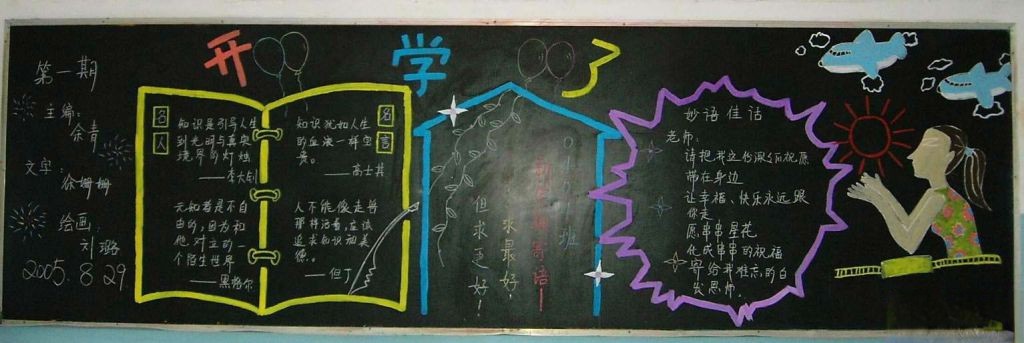 开学了
第一期
主编：
徐青
文字：
徐姗姗
绘画：
刘璐
2005.8.29
名人
知识是引导人生
到光明与真实
境界的灯烛
——李大钊
无知者是不自
由的，因为和
他对立的一
个陌生世界
——黑格尔
名言
知识犹如人生
的血液一样宝
贵。
——高士其
人不能像走兽
那样活着，应该
追求知识和美
德。
——但丁
班
寄语！
求最好，
但求更好！
妙语佳话
老师：
请把我这份深深的祝愿
带在身边
让幸福、快乐永远跟
你走
愿串串星花
化成串串的祝福
寄给我难忘的白
发恩师。